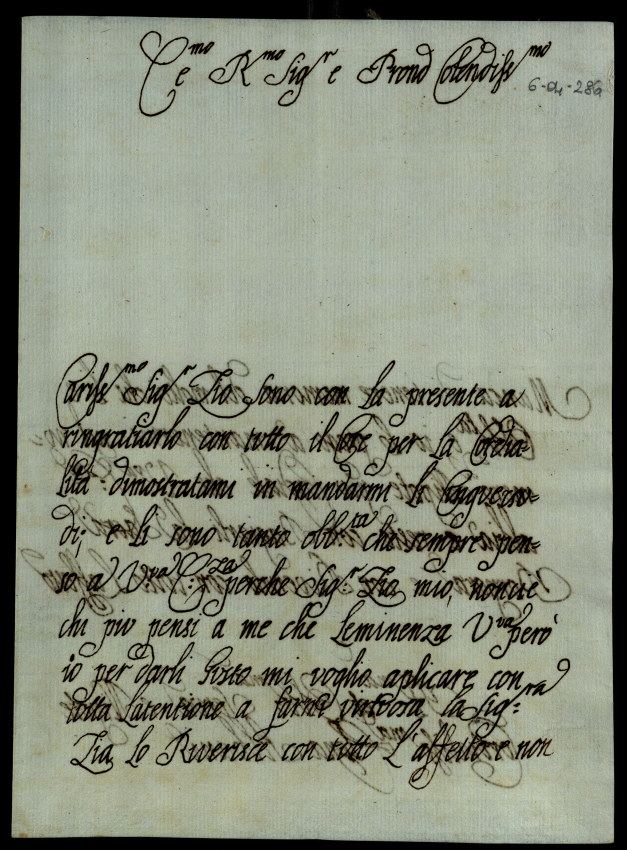 E.mo R.mo Sig.r e Prone Colendiss.mo
6-04-286
Cariss.mo Sig.r Zio sono con la presente a
ringratiarlo con tutto il Core per la Cordia-
lità dimostratami in mandarmi li
di; e li sono tanto obb:ta che sempre pen-
so a V.ra E:za perche Sig.r Zio mio, non ce
chi piv pensi a me che Leminenza V.ra però
io per darli Gosto mi voglio aplicare con
tutta Latentione a farmi virtvosa la Sig:ra
Zia lo Riverisce con tutto L'affetto e non